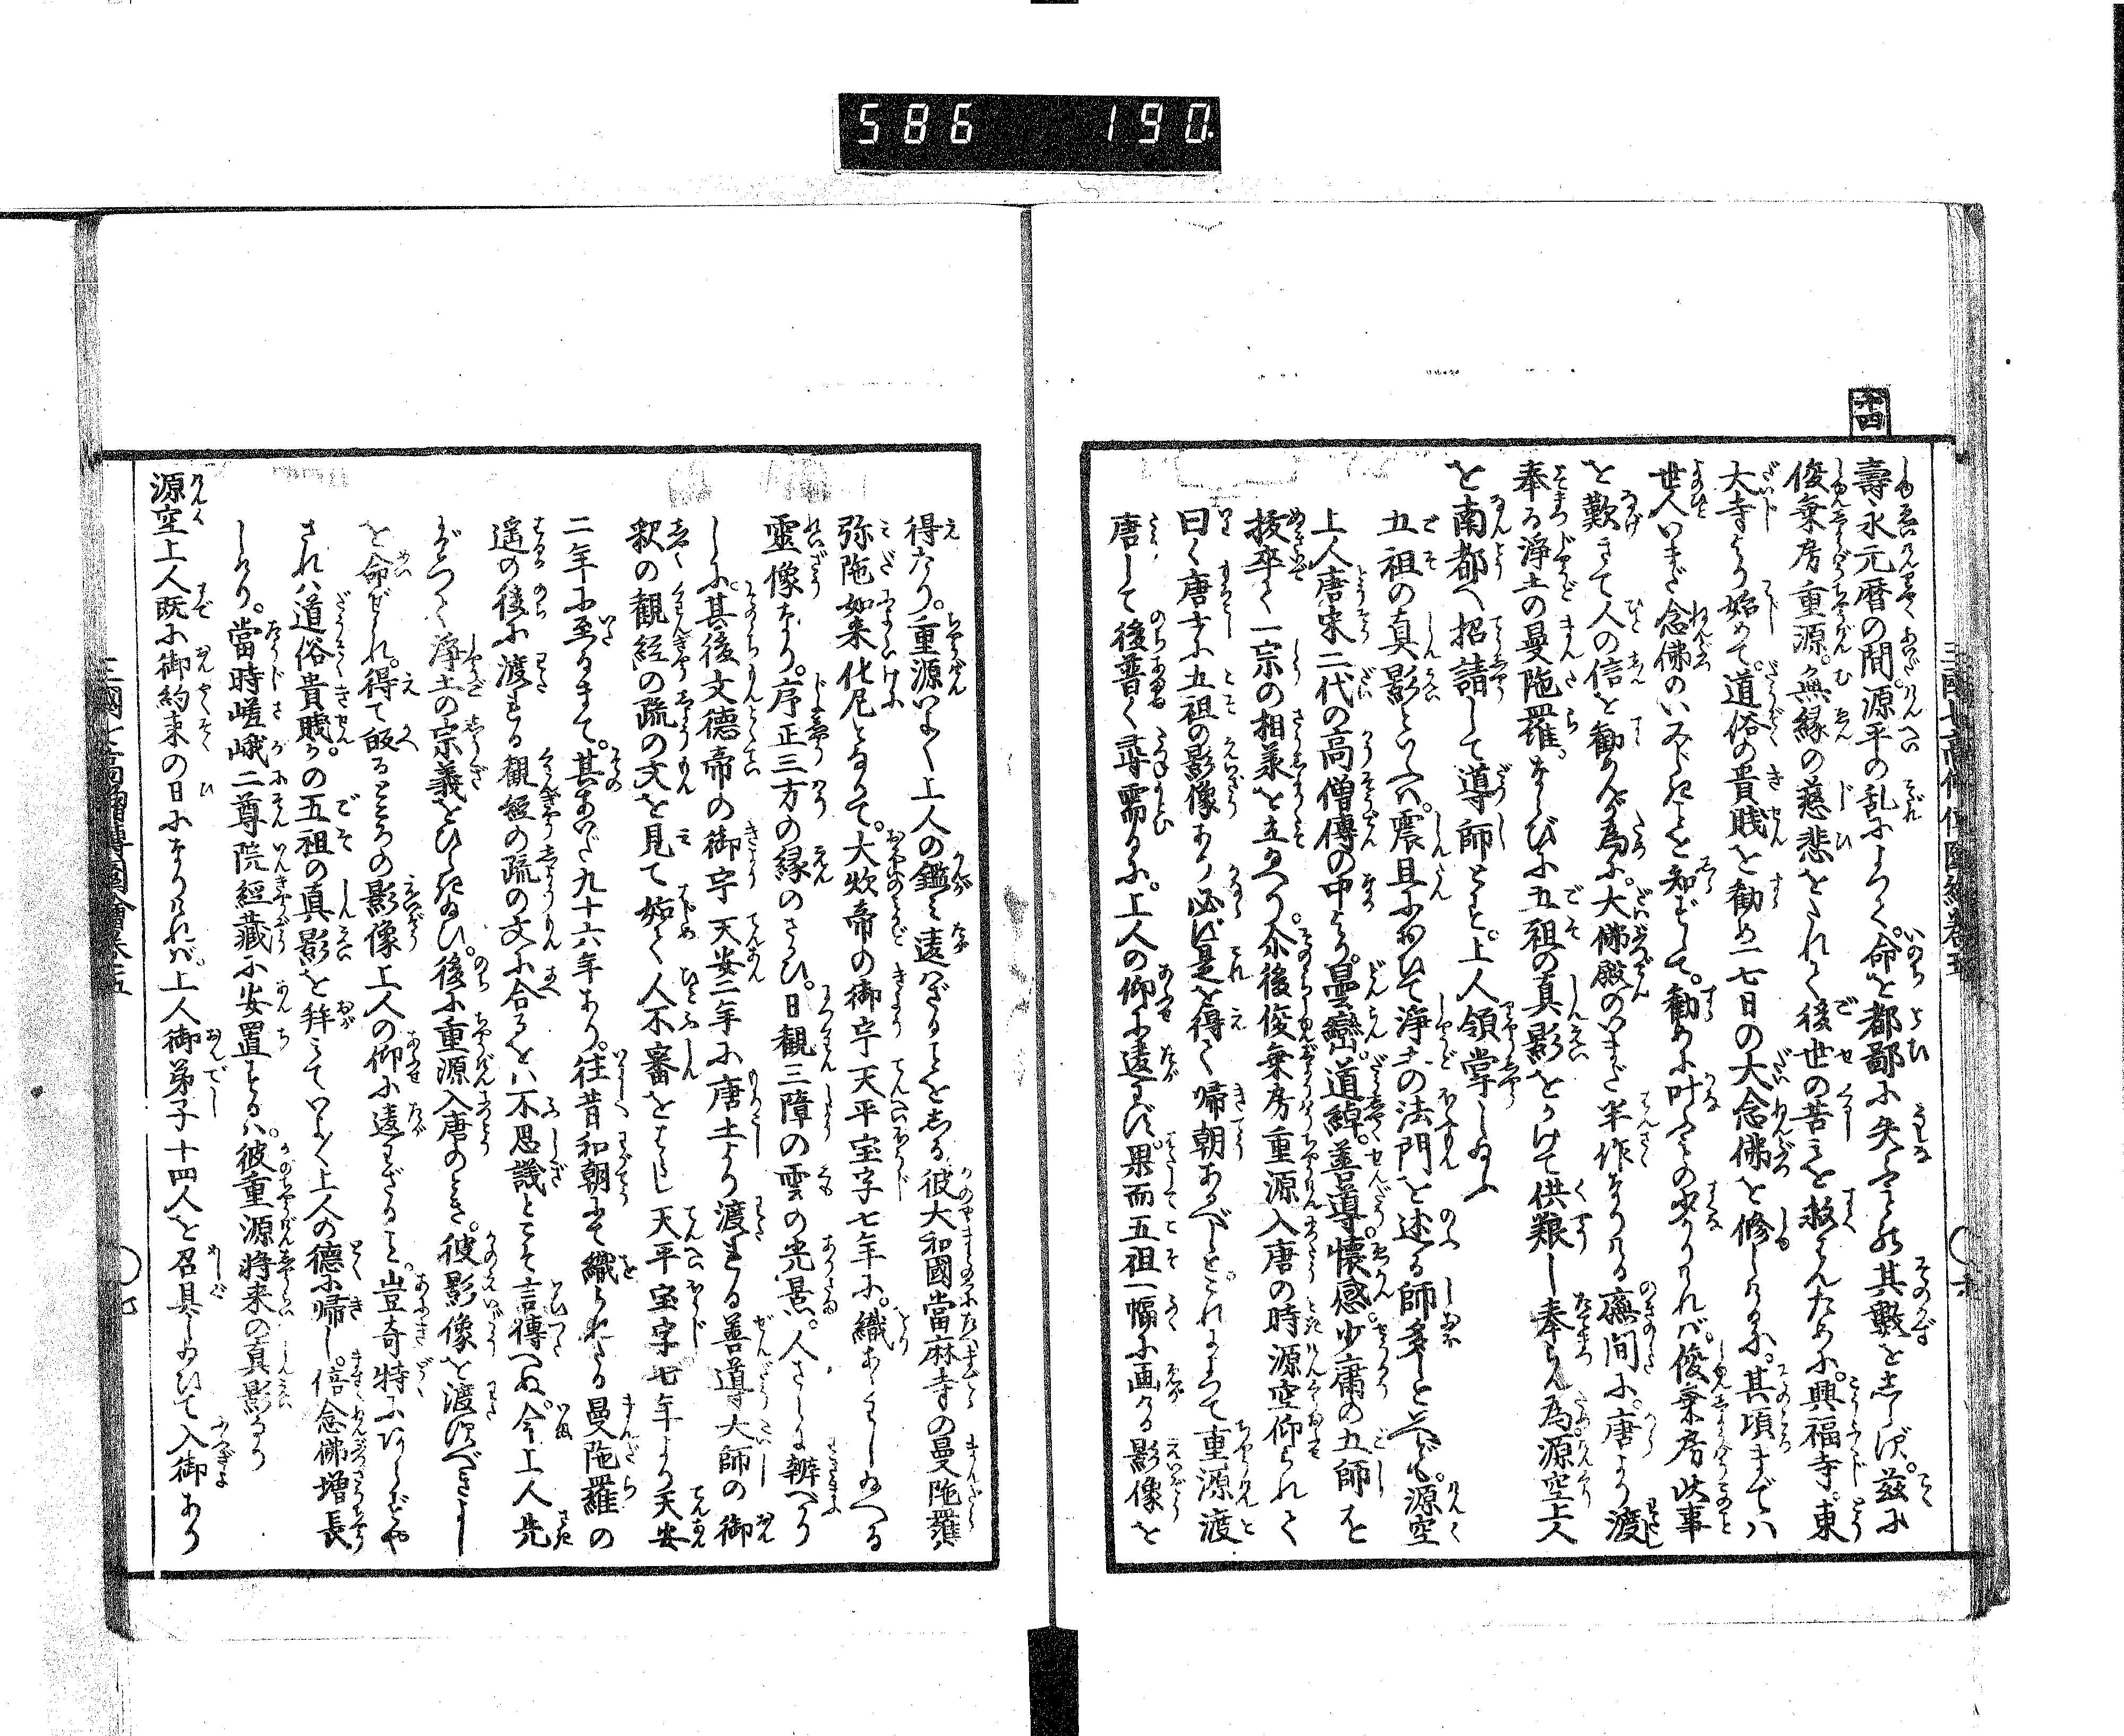 586 190.
六四
壽永元暦の間。源平の乱によつく。命を都鄙に失ふもの其數を志らず。茲に
俊乗房重源。無縁の慈悲をたれて後世の苦しミを救はんために。興福寺。東
大寺より始めて。道俗の貴賤を勧め二七日の大念佛を修しけるに。其項までハ
世人いまだ念佛のいみじきことを知ずして。勧めに叶ふもの少かりけれバ。俊乗房此事
を歎きて人の信を勧めんが為に。大佛殿のいまだ半作なりける廡間に。唐より渡
奉る浄土の曼陁羅。ならびに五祖の真影をかけて供養し奉らん為源空上人
を南都へ招請して導師とす。上人領掌し給ふ
五祖の真影といふハ。震旦におひて浄土の法門を述る師多しと云ども。源空
上人唐宋二代の高僧傳の中より。曇鸞。道綽。善導。懐感。少康の五師を
抜卒て一宗の相承を立給へり。尓後俊乗房重源入唐の時源空仰られて
曰く唐土に五祖の影像あり必ず是を得て帰朝あるべしと。これによつて重源渡
唐して後普く尋需るに。上人の仰に違はず。果而五祖一幅に画ける影像を
得たり。重源いよ〱上人の鑑ミ違はざることを志る。彼大和國當麻寺の曼陁羅ハ
弥陁如来化尼となりて。大炊帝の御宇天平宝字七年に。織あらはし給へる
靈像なり。序正三方の縁のさかひ。日觀三障の雲の光景。人さらに辨へざり
しに。其後文德帝の御宇天安二年に唐土より渡れる善導大師の御
釈の觀經の疏の文を見て始て人不審をはらし天平宝字七年より天安
二年に至るまて。其あいだ九十六年あり。往昔和朝にて織られたる曼陁羅の
遥の後に渡れる觀經の疏の文に合るをハ不思議とこそ言傳へぬ。今上人先
だつく浄土の宗義をひらき給ひ。後に重源入唐のとき。彼影像を渡すべきよし
を命ぜられ。得て皈るところの影像上人の仰に違はざること。豈奇特にあらずや
されハ道俗貴賤。かの五祖の真影を拜ミていよ〱上人の德に帰し。倍念佛増長
しけり。當時嵯峨二尊院經藏に安置するハ。彼重源将来の真影なり
源空上人既に御約束の日になりけれバ。上人御弟子十四人を召具し給ひて入御あり
三國七高僧傳圖繪巻五